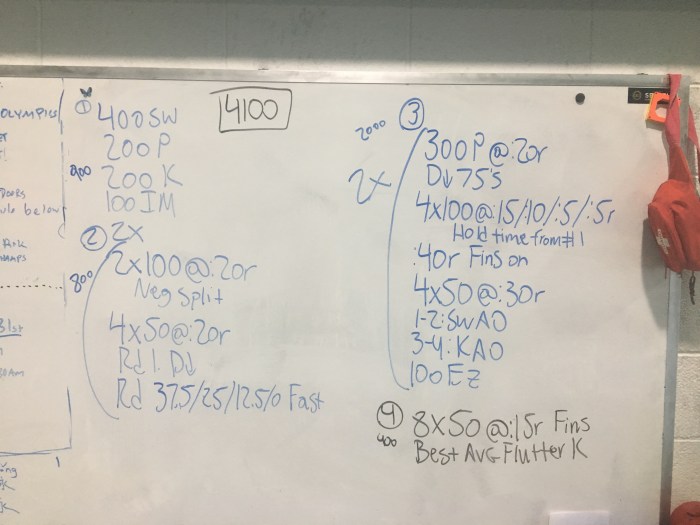 OLYMPICS
below
①
400 SW
200 P
900
200 K
100 IM
4100
② 2x
800
2x100@:20r
Neg Split
4x50@:20r
Rd 1: D↓
Rd 37.5/25/12.5/0 Fast
③
2000
2x
300P@:20r
D↓75's
4x100@:15/:10/:5/:5r
Hold time from #1
:40r Fins on
4x50@:30r
1-2: SWAO
3-4: KAO
100 EZ
④
400
8x50@:15r Fins
Best Avg Flutter K